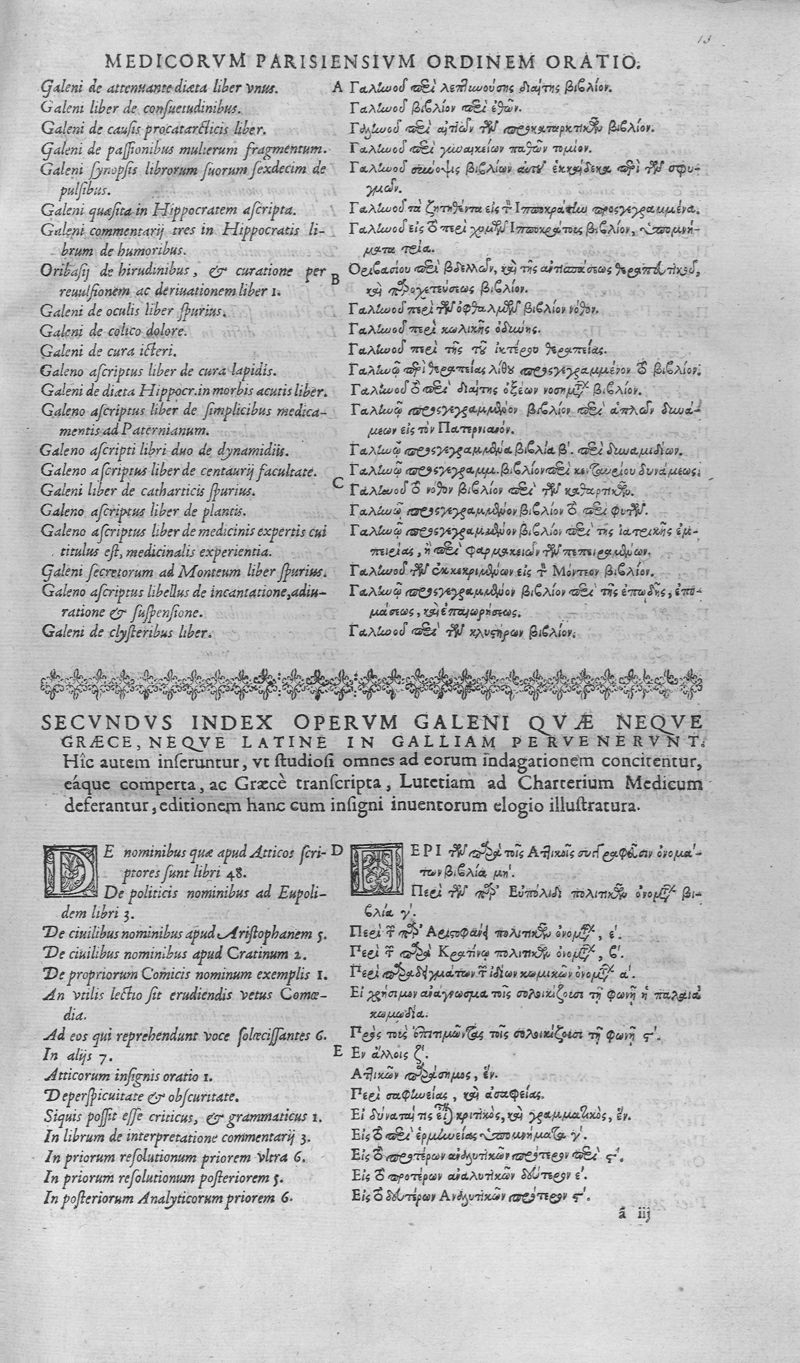 13
MEDICORVM PARISIENSIVM ORDINEM ORATIO.
Galeni de attenuante diæta liber vnus.
Galeni liber de consuetudinibus.
Galeni de causis procatarcticis liber.
Galeni de passionibus mulierum fragmentum.
Galeni synopsis librorum suorum sexdecim de
pulsibus.
Galeni quæsita in Hippocratem ascripta.
Galeni commentarij tres in Hippocratis li-
brum de humoribus.
Oribasij de hirudinibus, & curatione per
reuulsionem ac deriuationem liber 1.
Galeni de oculis liber spurius.
Galeni de colico dolore.
Galeni de cura icteri.
Galeno ascriptus liber de cura lapidis.
Galeni de diæta Hippocr. in morbis acutis liber.
Galeno ascriptus liber de simplicibus medica-
mentis ad Paternianum.
Galeno ascripti libri duo de dynamidiis.
Galeno ascriptus liber de centaurij facultate.
Galeni liber de catharticis spurius.
Galeno ascriptus liber de plantis.
Galeno ascriptus liber de medicinis expertis cui
titulus est, medicinalis experientia.
Galeni secretorum ad Monteum liber spurius.
Galeno ascriptus libellus de incantatione, adiu-
ratione & suspensione.
Galeni de clysteribus liber.
A
B
C
Γαλίωοῦ περὶ λεπτινούσης διαίτης βιβλίον.
Γαλίωοῦ βιβλίον περὶ ἐθῶν.
Γαλίωοῦ περὶ αἰτιῶν τῶν προκαταρκτικῶν βιβλίον.
Γαλίωοῦ περὶ γιωαικείων παθῶν τομίον.
Γαλίωοῦ σύνοψις βιβλίων αυτοῦ ἑκκαίδεκα περὶ τῶν σφυ-
γμῶν.
Γαλίωοῦ τὰ ζητηθέντα εἰς τὸν Ιπποκράτίω προσγεγραμμένα.
Γαλίωοῦ εἰς τὸ περὶ χυμῶν Ιπποκράτοις βιβλίον, ὑπομνή-
ματα τρία.
Οριβασίου περὶ βδελλῶν, καὶ τῆς αὐτισπάσεως θεραπευτικοῦ,
καὶ παροχετεύσεως βιβλίον.
Γαλίωοῦ περὶ τῶν ὀφθαλμῶν βιβλίον νόθον.
Γαλίωοῦ περὶ κωλικῆς ὀδύνης.
Γαλίωοῦ περὶ τῆς τοῦ ἰκτέρου θεραπείας.
Γαλίωῷ περὶ θεραπείας λίθου προσγεγραμμένον τὸ βιβλίον.
Γαλίωοῦ τὸ περὶ διαίτης ὀξέων νοσημάτων βιβλίον.
Γαλίωῷ προσγεγραμμένον βιβλίον περὶ ἁπλῶν δυνά-
μεων εἰς τὸν Πατερνιανόν.
Γαλίωῷ προσγεγραμμένα βιβλία β'. περὶ δυναμιδίων.
Γαλίωῷ προσγεγραμμ. βιβλίον περὶ κενταυρείου δυνάμεως.
Γαλίωοῦ τὸ νόθον βιβλίον περὶ τῶν καθαρτικῶν.
Γαλίωῷ προσγεγραμμένον βιβλίον τὸ περὶ φυτῶν.
Γαλίωῷ προσγεγραμμένον βιβλίον περὶ τῆς ἰατρικῆς ἐμ-
πειρίας, ἢ περὶ φαρμακειῶν τῶν πεπειραμένων.
Γαλίωοῦ τῶν ἐκκεκριμένων εἰς τὸν Μόντεον βιβλίον.
Γαλίωῷ προσγεγραμμένον βιβλίον περὶ τῆς ἐπωδῆς, ἐπο-
μάσεως, καὶ ἐπαιωρήσεως.
Γαλίωοῦ περὶ τῶν κλυστήρων βιβλίον.
SECVNDVS INDEX OPERVM GALENI QVÆ NEQVE
GRÆCE, NEQVE LATINE IN GALLIAM PERVENERVNT.
Hîc autem inseruntur, vt studiosi omnes ad eorum indagationem concitentur,
eáque comperta, ac Græcè transcripta, Lutetiam ad Charterium Medicum
deferantur, editionem hanc cum insigni inuentorum elogio illustratura.
DE nominibus quæ apud Atticos scri-
ptores sunt libri 48.
De politicis nominibus ad Eupoli-
dem libri 3.
De ciuilibus nominibus apud Aristophanem 5.
De ciuilibus nominibus apud Cratinum 2.
De propriorum Comicis nominum exemplis 1.
An vtilis lectio sit erudiendis vetus Comœ-
dia.
Ad eos qui reprehendunt voce solœcissantes 6.
In alijs 7.
Atticorum insignis oratio 1.
De perspicuitate & obscuritate.
Siquis possit esse criticus, & grammaticus 1.
In librum de interpretatione commentarij 3.
In priorum resolutionum priorem vltra 6.
In priorum resolutionum posteriorem 5.
In posteriorum Analyticorum priorem 6.
D
E
ΠΕΡΙ τῶν παρὰ τοῖς Ατλικοῖς συγγραφεῦσιν ὀνομά-
των βιβλία μη'.
Περὶ τῶν παρ' Εὐπόλιδι πολιτικῶν ὀνομάτων βι-
βλία γ'.
Περὶ τῶν παρ' Αριστοφάνῃ πολιτικῶν ὀνομάτων, ε'.
Περὶ τῶν παρὰ Κρατίνῳ πολιτικῶν ὀνομάτων, β'.
Περὶ παραδειγμάτων τῶν ἰδίων κωμικῶν ὀνομάτων α'.
Εἰ χρήσιμον ἀνάγνωσμα τοῖς σολοικίζουσι τῇ φωνῇ ἡ παλαιὰ
κωμωδία.
Πρὸς τοὺς ἐπιτιμῶντας τοῖς σολοικίζουσι τῇ φωνῇ ϛ'.
Εν ἄλλοις ζ'.
Ατλικῶν παράσημος, ἕν.
Περὶ σαφίωείας, καὶ ἀσαφείας.
Εἰ δύναταί τις εἶναι κριτικὸς, καὶ γραμματικὸς, ἕν.
Εἰς τὸ περὶ ἑρμίωείας ὑπομνήματα γ'.
Εἰς τὸ προτέρων ἀναλυτικῶν πρότερον περὶ ϛ'.
Εἰς τὸ προτέρων ἀναλυτικῶν δεύτερον ε'.
Εἰς τὸ δευτέρων Αναλυτικῶν πρότερον ϛ'.
â iij